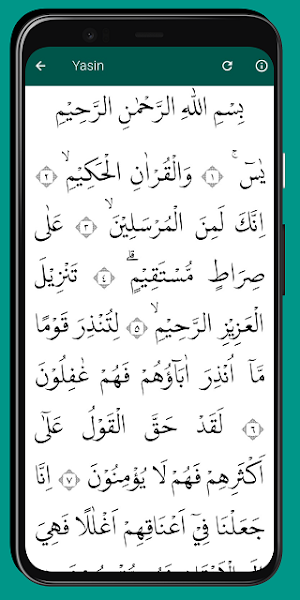 Yasin
بِسْمِ اللّٰهِ الرَّحْمٰنِ الرَّحِيْمِ
يٰسۤ ۚ ﴿١﴾ وَالْقُرْاٰنِ الْحَكِيْمِ ۙ ﴿٢﴾
اِنَّكَ لَمِنَ الْمُرْسَلِيْنَ ۙ ﴿٣﴾ عَلٰى
صِرَاطٍ مُّسْتَقِيْمٍ ۗ ﴿٤﴾ تَنْزِيْلَ
الْعَزِيْزِ الرَّحِيْمِ ۙ ﴿٥﴾ لِتُنْذِرَ قَوْمًا
مَّآ اُنْذِرَ اٰبَاۤؤُهُمْ فَهُمْ غٰفِلُوْنَ
﴿٦﴾ لَقَدْ حَقَّ الْقَوْلُ عَلٰٓى
اَكْثَرِهِمْ فَهُمْ لَا يُؤْمِنُوْنَ ﴿٧﴾ اِنَّا
جَعَلْنَا فِيْٓ اَعْنَاقِهِمْ اَغْلٰلًا فَهِيَ